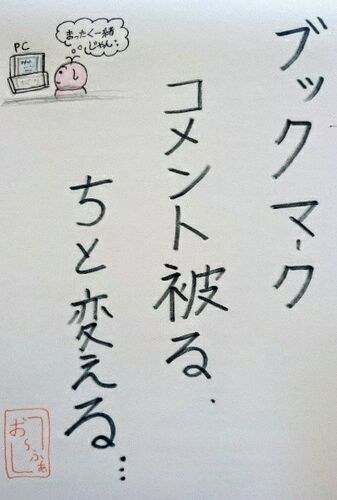 ブックマーク
コメント被る.
ちと変える...
PC
まったく一緒
じゃん...